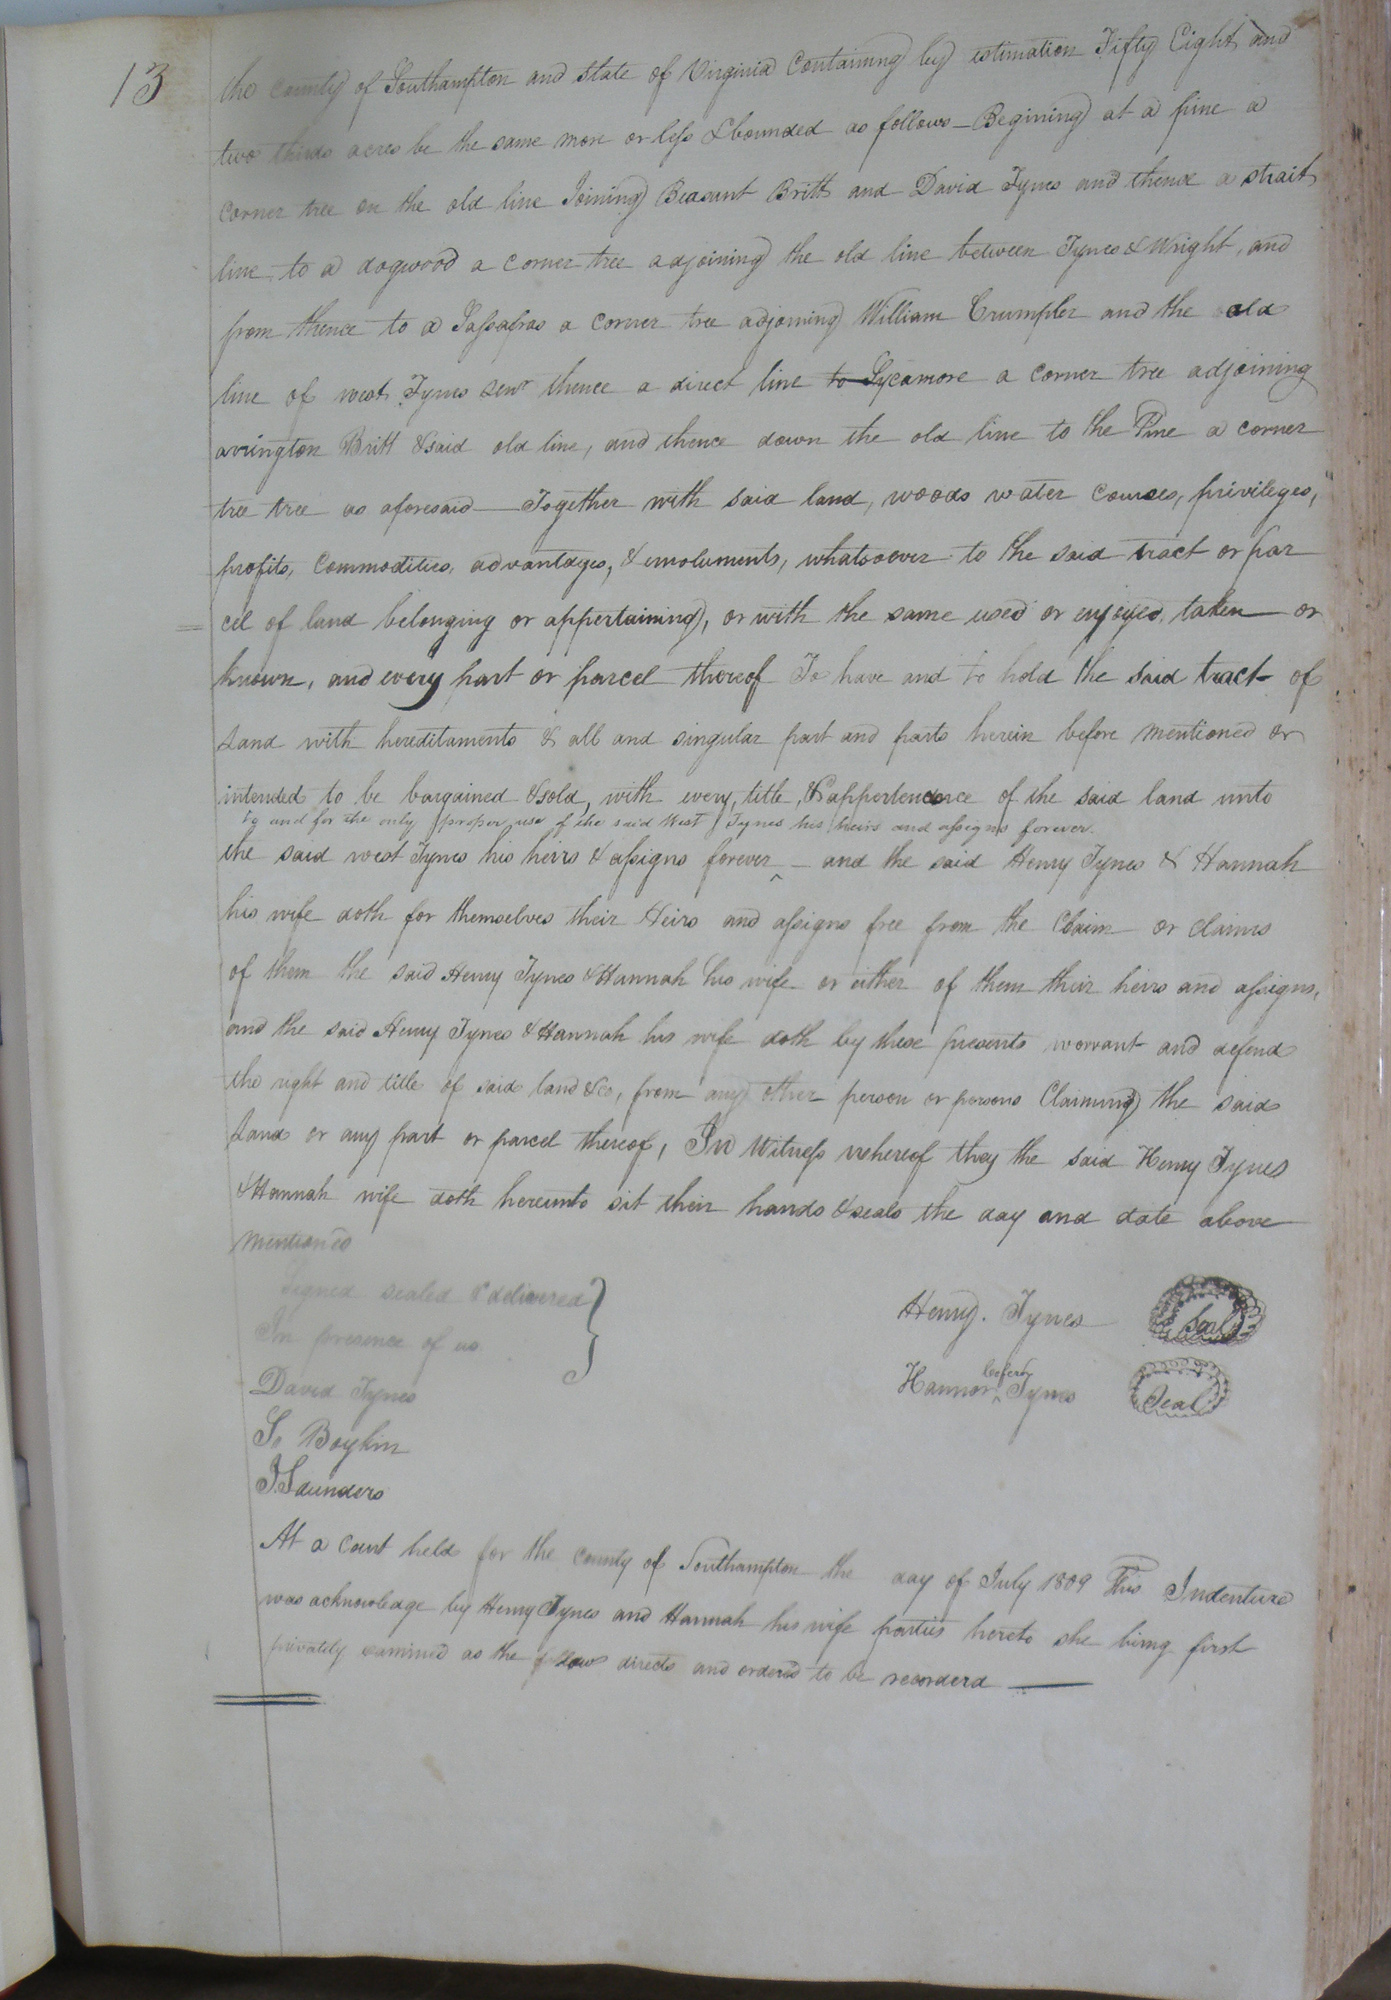 13
the county of Southampton and state of Virginia Containing by estimation Fifty Eight and
two thirds acres be the same more or less & bounded as follows – Begining at a pine a
corner tree on the old line Joining Beasant Britt and David Tynes and thence a strait
line to a dogwood a corner tree adjoining the old line between Tynes & Wright, and
from thence to a Sassafras a corner tree adjoining William Crumpler and the old
line of west Tynes senr thence a direct line to Sycamore a corner tree adjoining
arrington Britt & said old line, and thence down the old line to the Pine a corner
tree tree as aforesaid — Together with said land, woods water courses, privileges,
profits, Commodities, advantages, & emoluments, whatsoever to the said tract or par
cel of land belonging or appertaining, or with the same used or enjoyed, taken or
known, and every part or parcel thereof To have and to hold the said tract of
Land with hereditaments & all and singular part and parts herein before mentioned or
intended to be bargained & sold, with every, title, & appertenance of the said land unto
to and for the only proper use of the said West Tynes his heirs and assigns forever.
the said west Tynes his heirs & assigns forever ^ – and the said Henry Tynes & Hannah
his wife doth for themselves their Heirs and assigns free from the Claim or claims
of them the said Henry Tynes & Hannah his wife or either of them their heirs and assigns,
and the said Henry Tynes & Hannah his wife doth by these presents warrant and defend
the right and title of said land &c, from any other person or persons Claiming the said
Land or any part or parcel thereof, In Witness whereof they the said Henry Tynes
& Hannah wife doth hereunto sit their hands & seals the day and date above
mentioned
Signed sealed & delivered
In presence of us
Henry. Tynes Seal
David Tynes
Hannor ^ Tynes Seal
So Boykin
J. Saunders
At a Court held for the county of Southampton the day of July 1809 This Indenture
was acknowledge by Henry Tynes and Hannah his wife parties hereto she being first
privately examined as the law directs and ordered to be recorderd